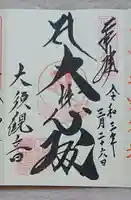 奉拝
令和三年
三月二十八日
大悲殿
大須観音